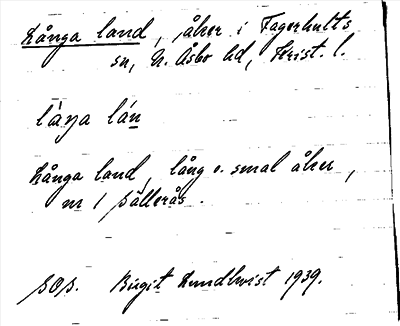 Långa land, åker i Fagerhults
sn, N. Åsbo hd, Krist. l.
làŋa lán
Långa land, lång o. smal åker,
nr 1 Sällerås.
SOS. Birgit Lundkvist 1939.